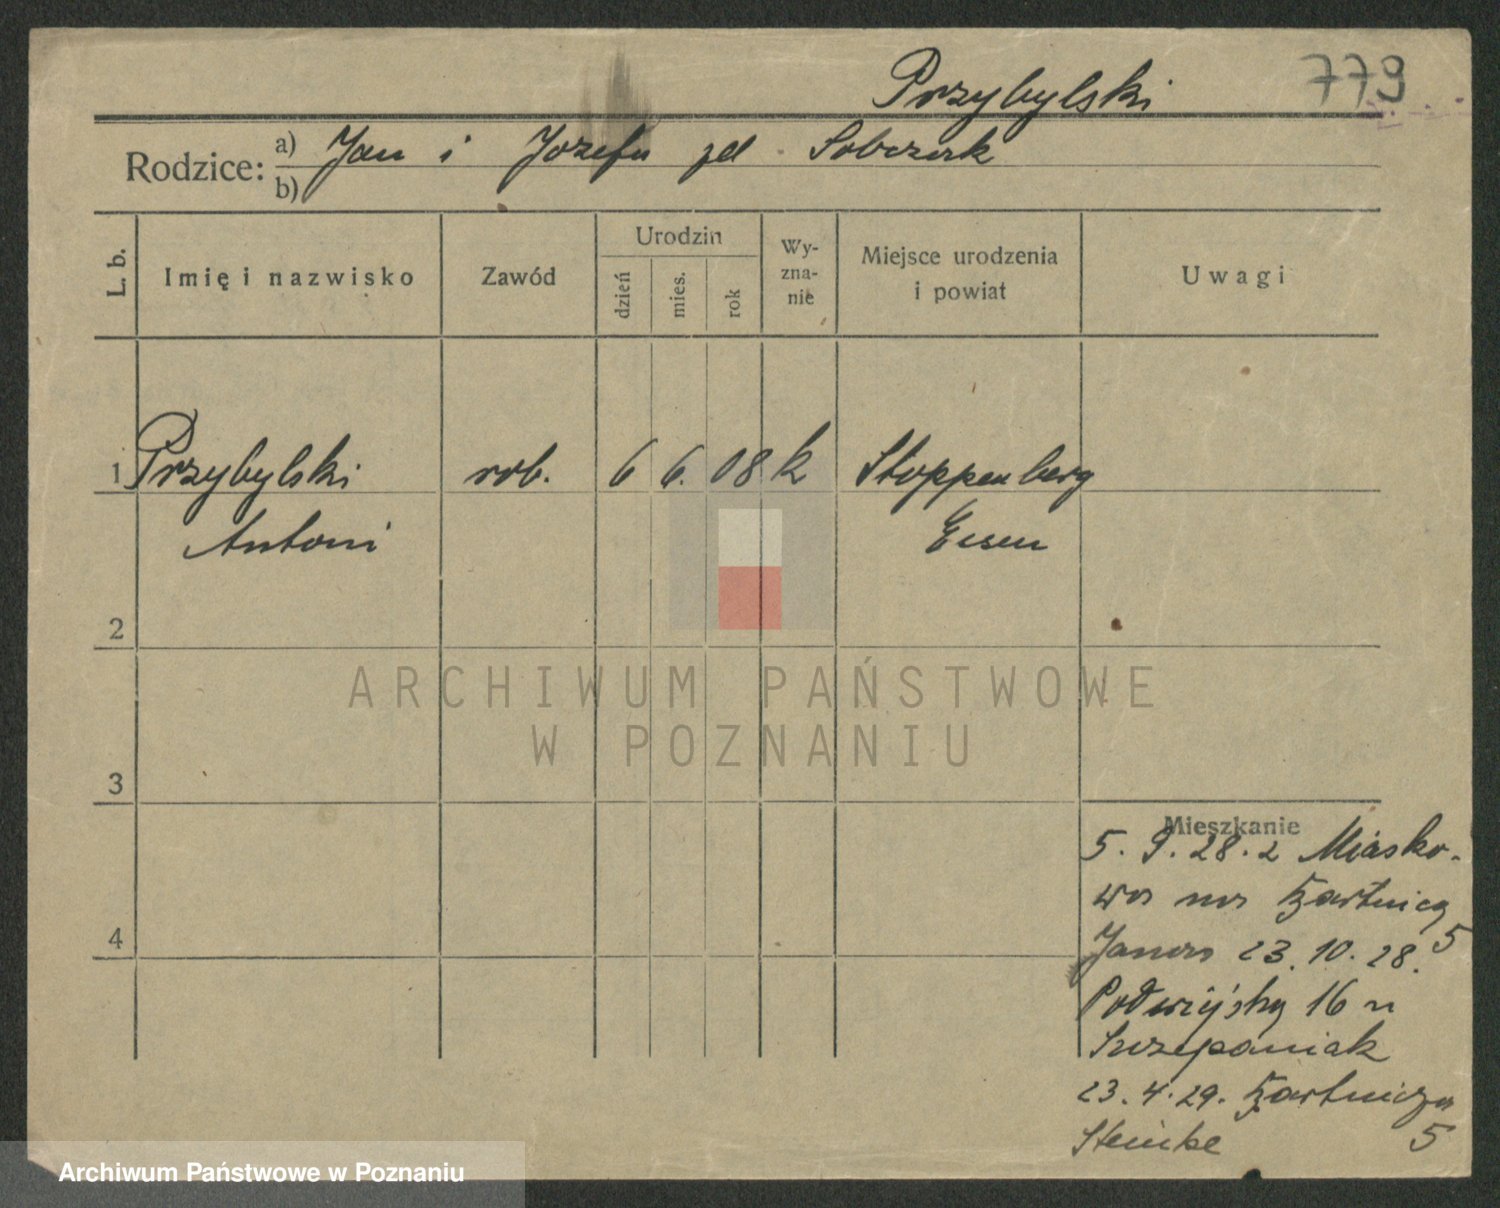 Przybylski 779
Rodzice: a) Jan i Józefa zd Sobczak
b)
L. b.
Imię i nazwisko
Zawód
Urodzin
dzień
mies.
rok
Wy-
zna-
nie
Miejsce urodzenia
i powiat
Uwagi
1 Przybylski rob. 6 6. 08 k Stoppenberg
Antoni Essen
2
ARCHIWUM PAŃSTWOWE
W POZNANIU
3
Mieszkanie
5. 9. 28. z Miasko-
wa na Zartnicą
5
23. 10. 28.
16 u
Szczepaniak
23. 4. 29.
Steinke 5
4
Archiwum Państwowe w Poznaniu